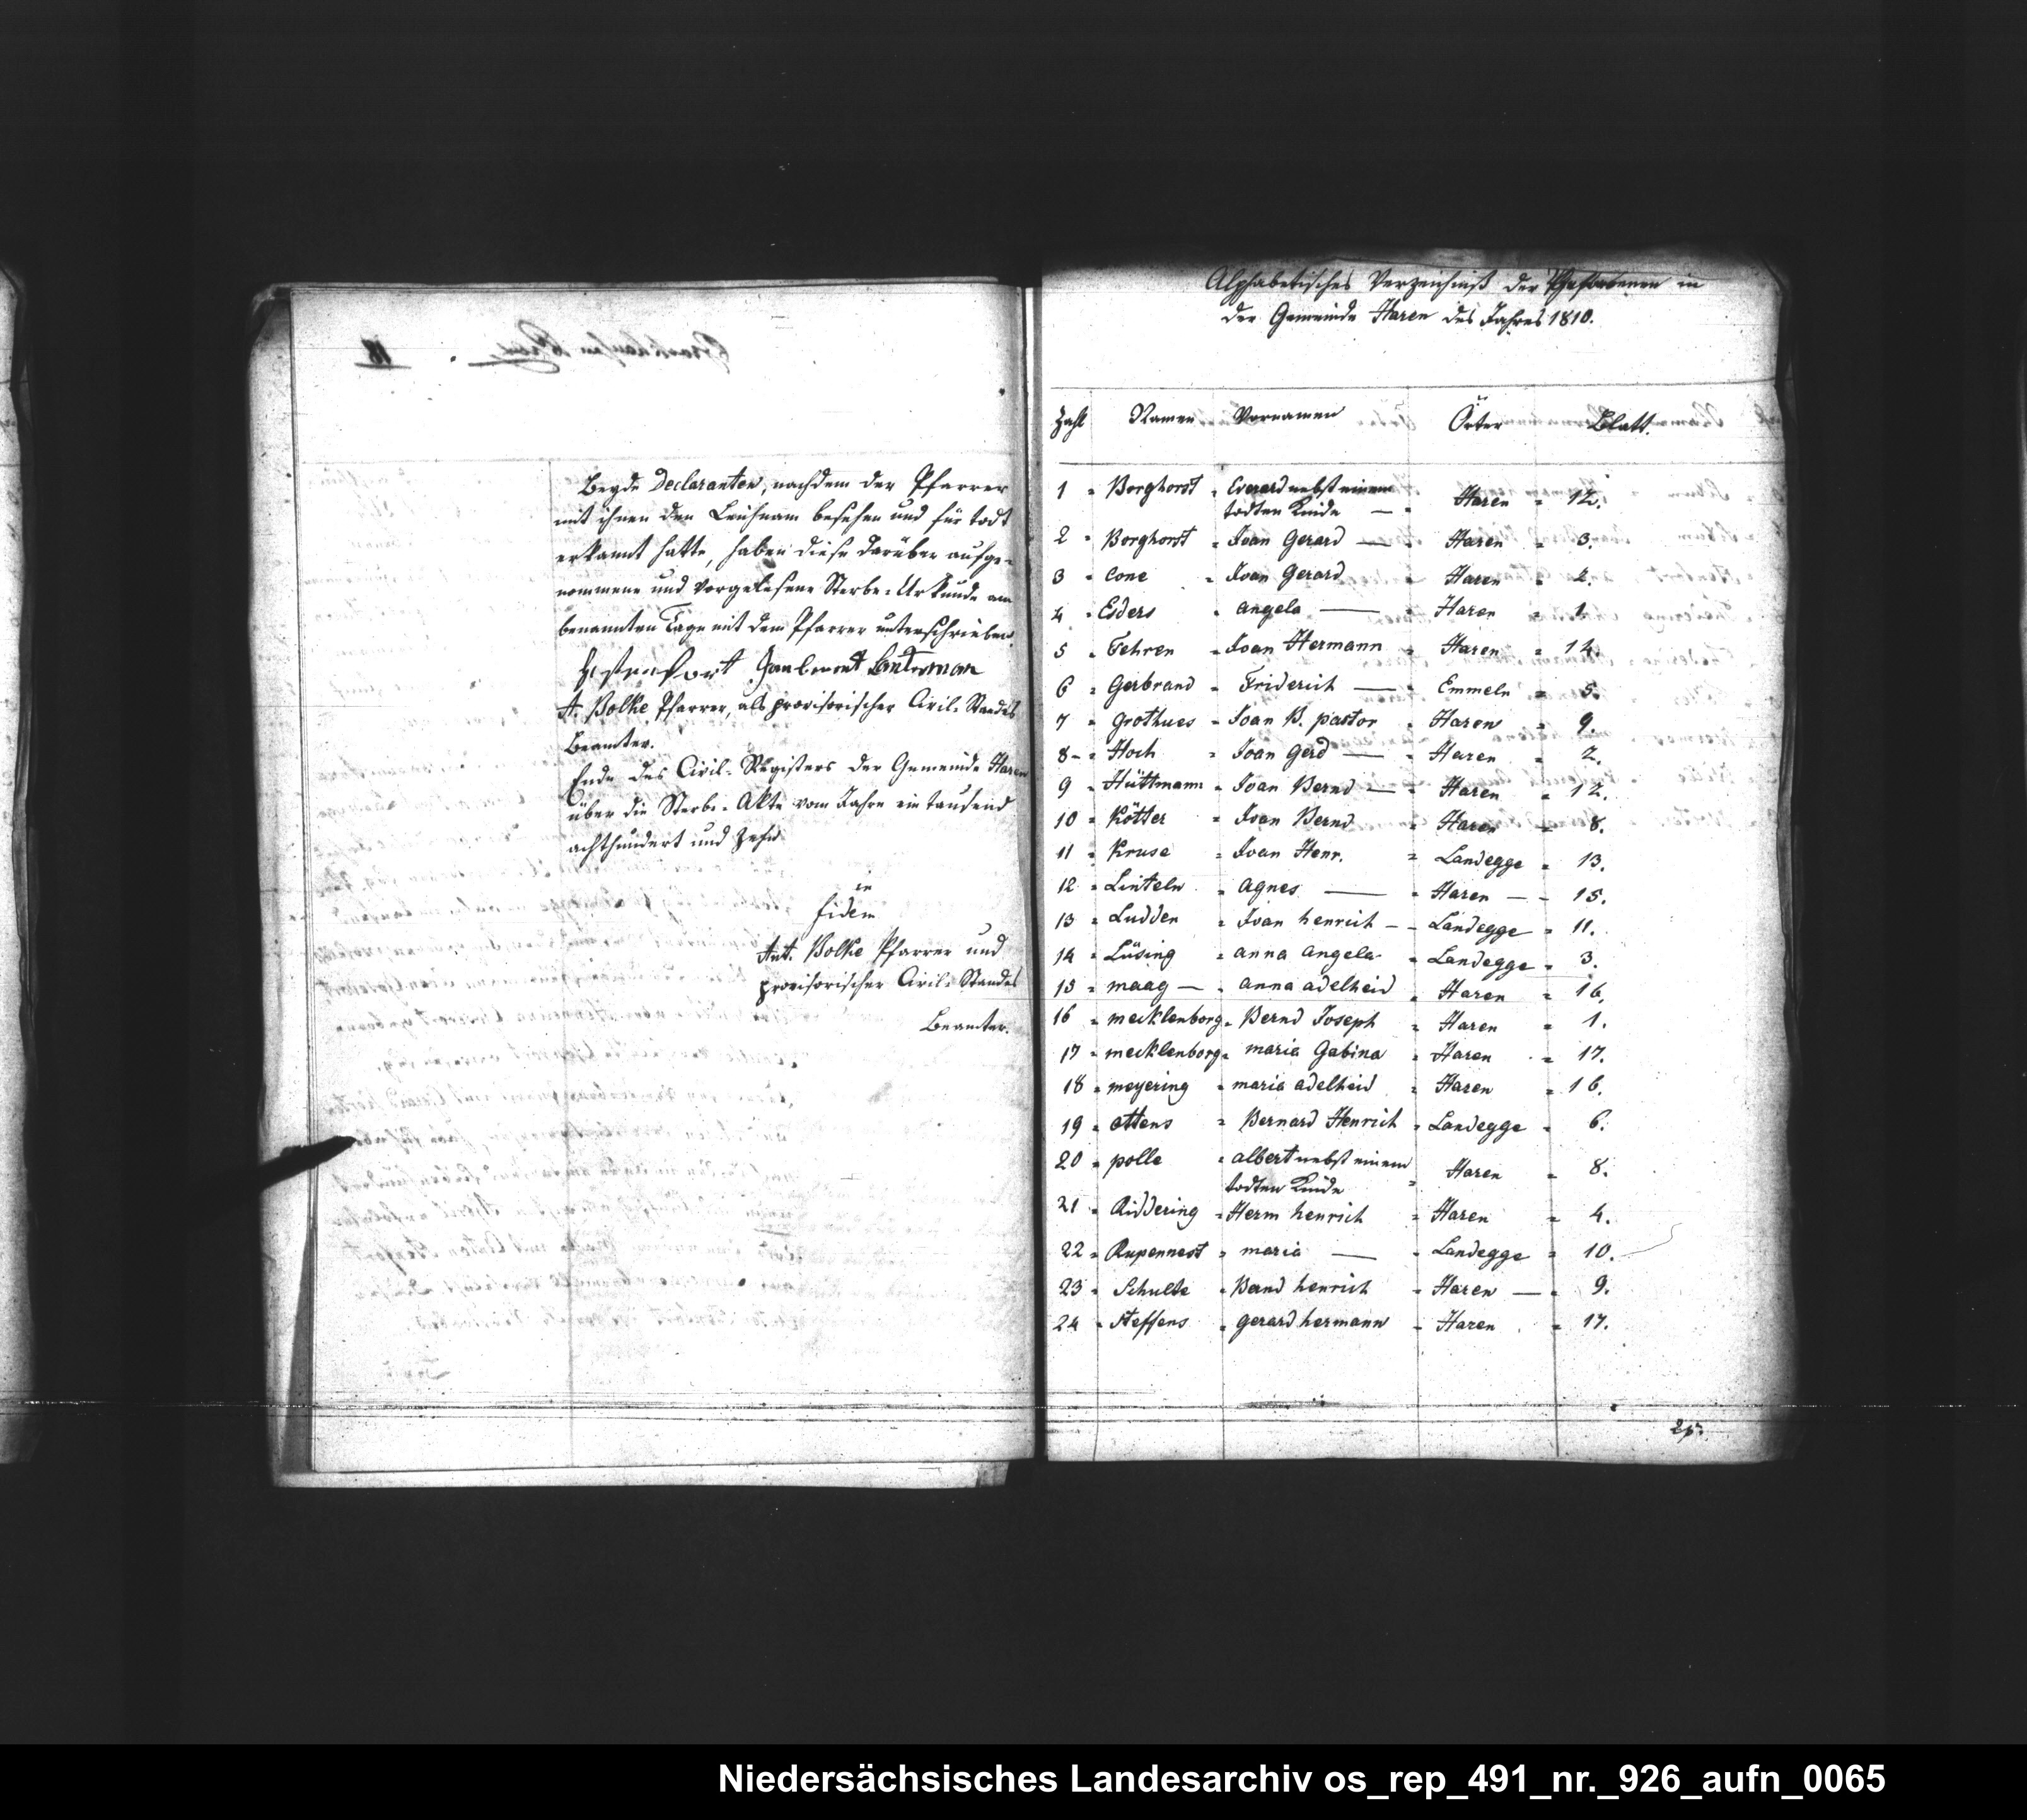 Beyde Declaranten, nachdem der Pfarrer
mit ihnen den Leichnam besehen und für todt
erkannt hatte, haben diese darüber aufge-
nommene und vorgelesene Sterbe-Urkunde am
benannten Tage mit dem Pfarrer unterschrieben.
A. Bolke Pfarrer, als provisorischer Civil-Standes
Beamter.
Ende des Civil-Registers der Gemeinde Haren
über die Sterbe-Akte vom Jahre ein tausend
achthundert und zehn
in
fidem
Ant. Bolke Pfarrer und
provisorischer Civil-Standes
Beamter.
Alphabetisches Verzeichniß der in
der Gemeinde Haren des Jahres 1810.
Zahl Namen Vornamen Örter Blatt.
1 = Borghorst = Everard nebst einem
todten Kinde — Haren = 12.
2 = Borghorst = Joan Gerard — Haren = 3.
3 = Cone = Joan Gerard Haren = 2.
4 = Esders = Angela — Haren = 1.
5 = Fehren = Joan Hermann = Haren = 14.
6 = Gerbrand = Friderich — Emmeln = 5.
7 = Grothues = Joan B. pastor = Haren = 9.
8 = Hoch = Joan Gerd — Haren = 2.
9 = Hüttmann = Joan Bernd — Haren = 12.
10 = Kötter = Joan Bernd = Haren = 8.
11 = Kruse = Joan Henr. = Landegge = 13.
12 = Linteln = Agnes — = Haren — = 15.
13 = Ludden = Joan henrich — = Landegge = 11.
14 = Lüsing = anna Angela = Landegge = 3.
15 = maag — = anna adelheid = Haren = 16.
16 = mecklenborg = Bernd Joseph = Haren = 1.
17 = mecklenborg = maria Gabina = Haren = 17.
18 = meyering = maria adelheid = Haren = 16.
19 = ottens = Bernard Henrich = Landegge = 6.
20 = polle = albert nebst einem
todten Kinde = Haren = 8.
21 = Riddering = Herm henrich = Haren = 4.
22 = Rupennest = maria — = Landegge = 10.
23 = Schulte = Bernd henrich = Haren — = 9.
24 = Steffens = gerard hermann = Haren = 17.
Niedersächsisches Landesarchiv os_rep_491_nr._926_aufn_0065